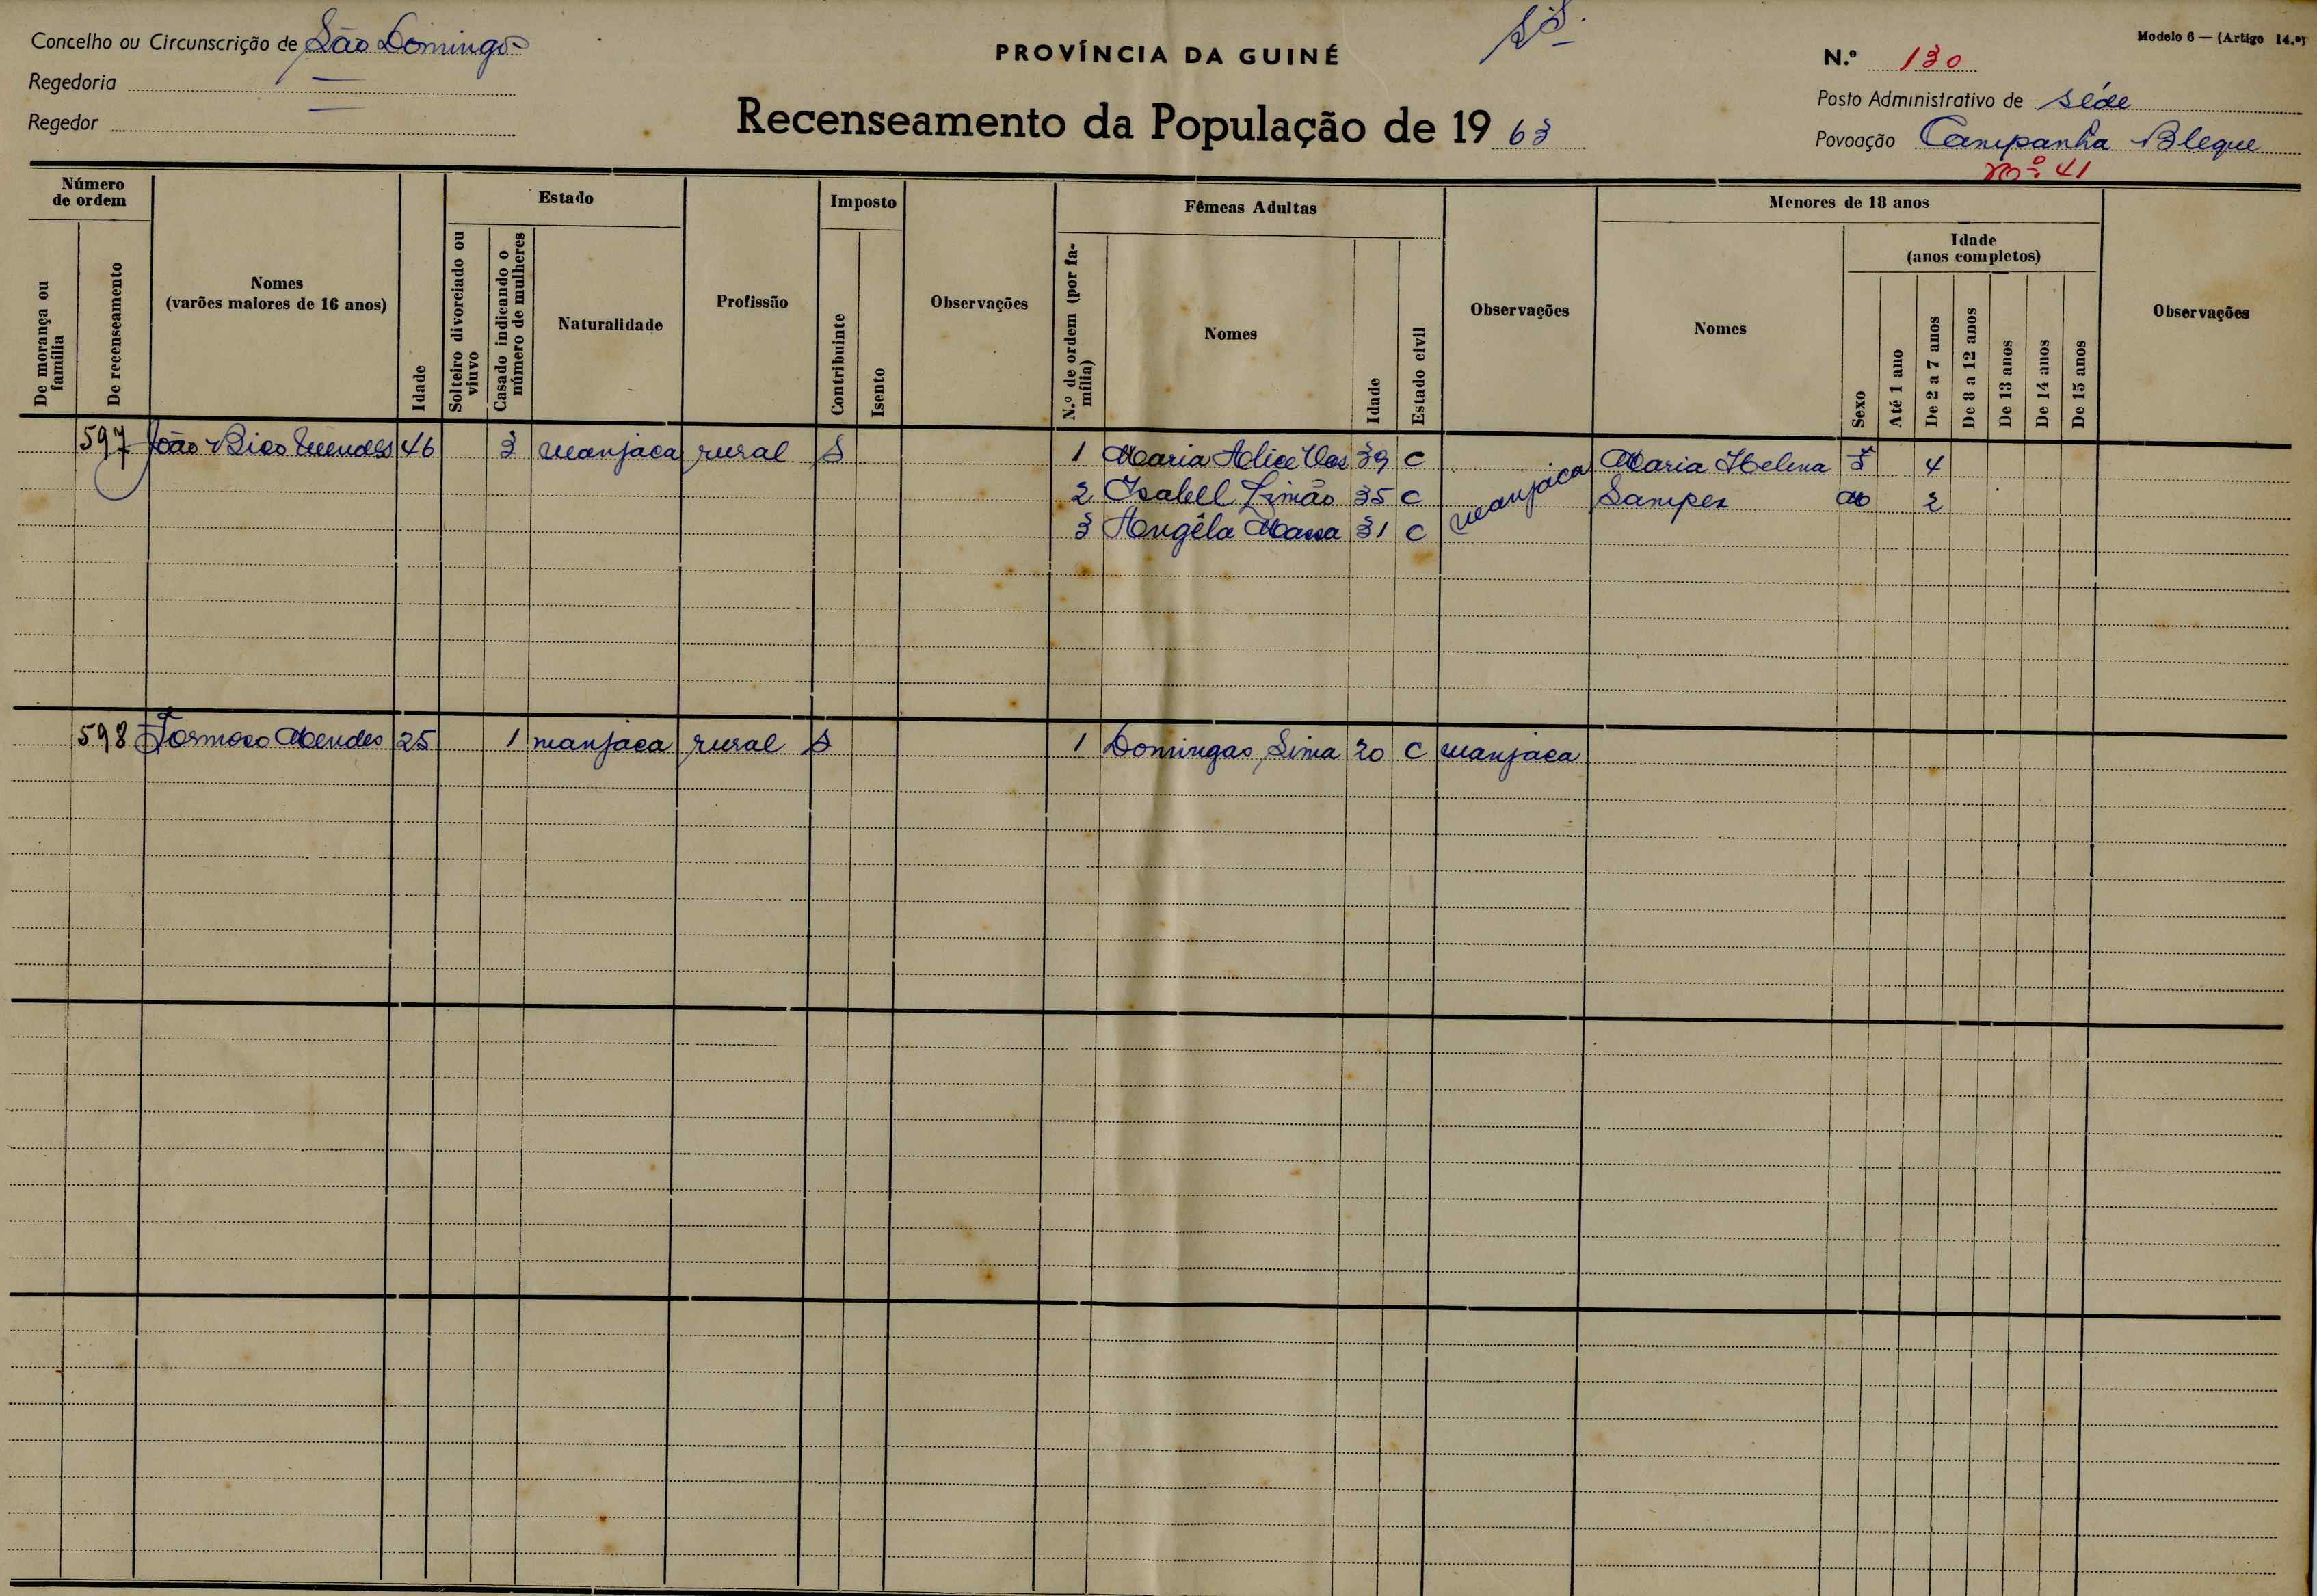 Concelho ou Circunscrição de São Domingos
PROVÍNCIA DA GUINÉ
Modelo 6 — (Artigo 14.º)
N.º 130
Regedoria —
Regedor —
Recenseamento da População de 1963
Posto Administrativo de Séde
Povoação Campanha Bleque
Nº 41
Número de ordem
De morança ou família
De recenseamento
Nomes
(varões maiores de 16 anos)
Idade
Estado
Solteiro divorciado ou viuvo
Casado indicando o número de mulheres
Naturalidade
Profissão
Imposto
Contribuinte
Isento
Observações
Fêmeas Adultas
N.º de ordem (por família)
Nomes
Idade
Estado civil
Observações
Menores de 18 anos
Nomes
Sexo
Idade
(anos completos)
Até 1 ano
De 2 a 7 anos
De 8 a 12 anos
De 13 anos
De 14 anos
De 15 anos
Observações
597 João Bico Mendes 46 3 manjaca rural S 1 Maria Alice Vas 39 C manjaca Maria Helena F 4
2 Isabell Simão 35 C Samper M 2
3 Angêla Massa 31 C
598 Formoso Mendes 25 1 manjaca rural S 1 Domingas Lima 20 C manjaca